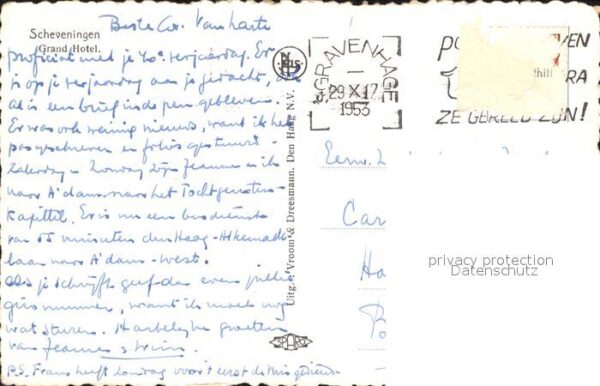 Scheveningen
Grand Hotel.
Beste Cor. Van harte
proficiat met je 40e verjaardag. Er
is op je verjaardag aan je gedacht,
al is een brief in de pen gebleven.
Er was ook weinig nieuws, want ik heb
pas geschreven en foto's gestuurd.
Zaterdag en Zondag zijn Jeanne en ik
naar A'dam naar het Tochtgenoten-
kapittel. Er is nu een busdienst
van 55 minuten den Haag - Alkemade
laan naar A'dam-West.
Als je schrijft geef dan even jullie
giro nummer, want ik moet nog
wat sturen. Hartelijke groeten
van Jeanne
P.S. Frans heeft Zondag voor 't eerst de Mis gediend.
Uitg. v. Vroom & Dreesmann. Den Haag N.V.
SPARO
'S GRAVENHAGE
29 X 17
1953
ZE GEREED ZIJN!
Eerw. Z
Car
Ha
privacy protection
Datenschutz